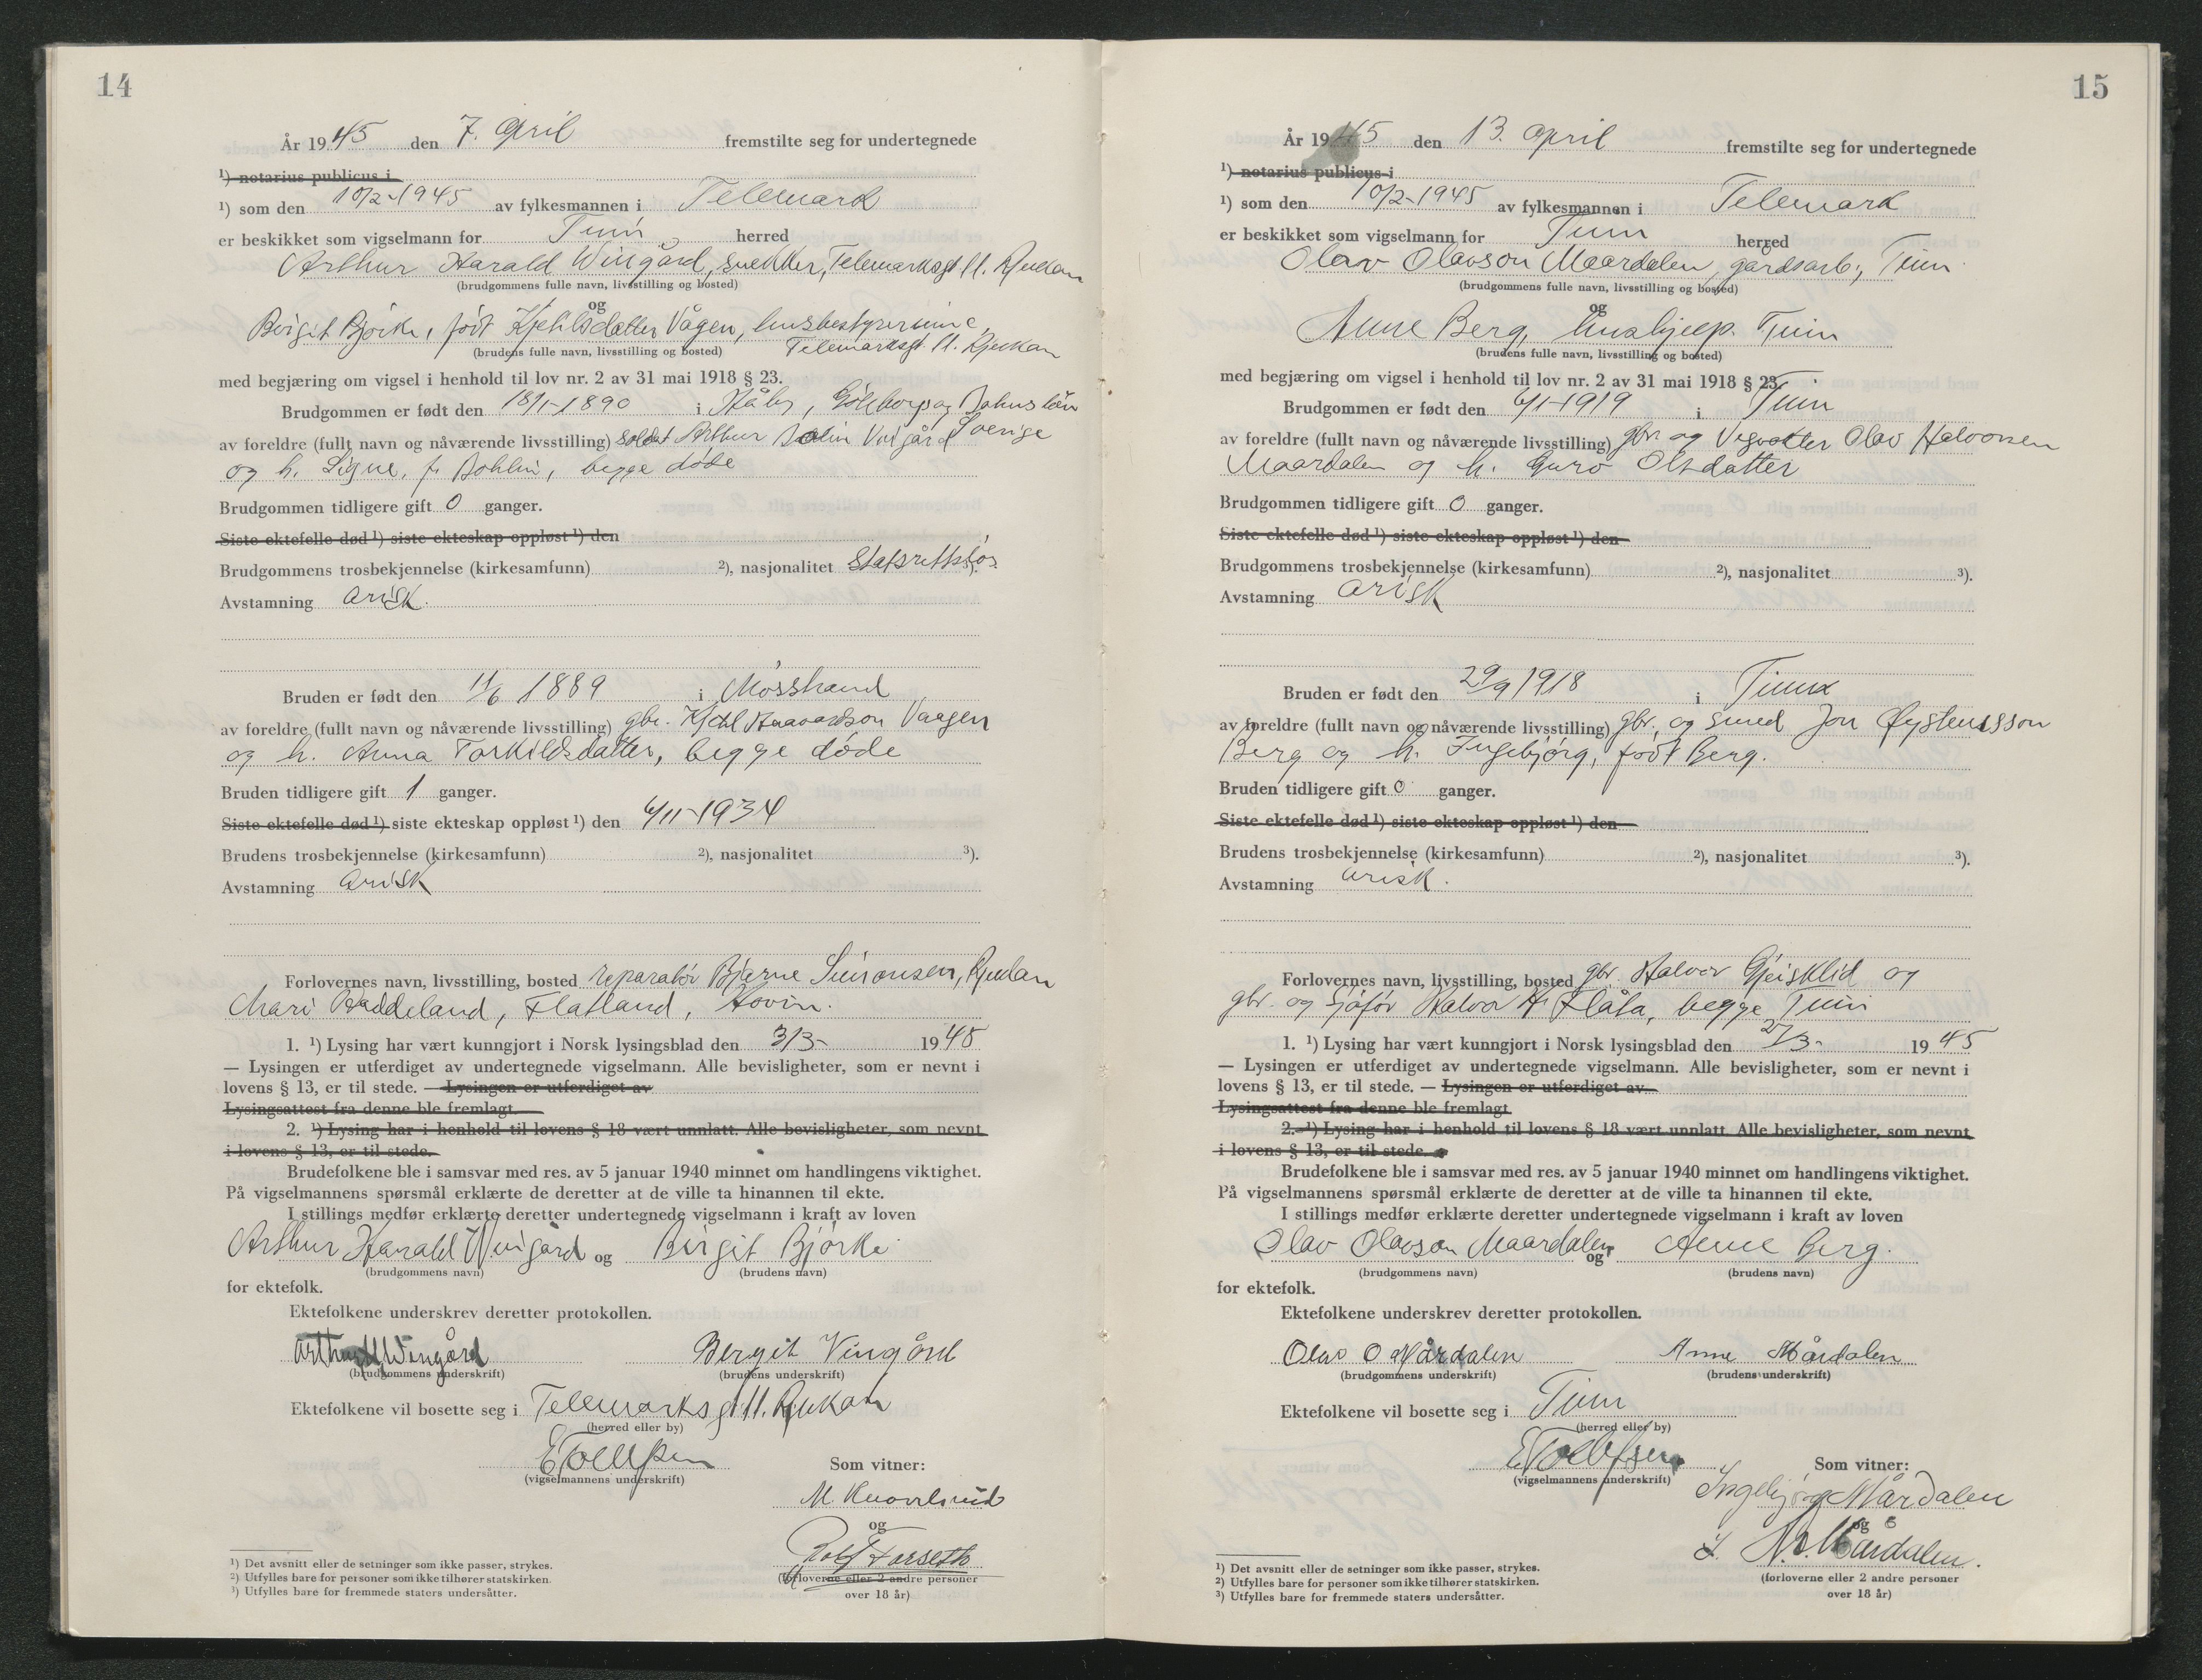 14
År 1945 den 7. April fremstilte seg for undertegnede
¹) notarius publicus i
¹) som den 10/2-1945 av fylkesmannen i Telemark
er beskikket som vigselmann for Tinn herred
Arthur Harald Wingård, snekker, Telemarksgt 11. Rjukan
(brudgommens fulle navn, livsstilling og bosted)
og
Birgit Bjørke, født Kjetilsdatter Vågen, husbestyrerinne,
Telemarksgt. 11. Rjukan
(brudens fulle navn, livsstilling og bosted)
med begjæring om vigsel i henhold til lov nr. 2 av 31 mai 1918 § 23.
Brudgommen er født den 18/1-1890 i Håby, Göteborg og Bohus län
Sverige
av foreldre (fullt navn og nåværende livsstilling) soldat Arthur Vingård
og h. Signe, f. Bohlin, begge døde
Brudgommen tidligere gift 0 ganger.
Siste ektefelle død ¹) siste ekteskap oppløst ¹) den
Brudgommens trosbekjennelse (kirkesamfunn) ²), nasjonalitet Statsrettsløs ³).
Avstamning arisk.
Bruden er født den 11/6 1889 i Møsstrand
av foreldre (fullt navn og nåværende livsstilling) gbr. Kjetil Haavardson Vaagen
og h. Anna Torkildsdatter, begge døde
Bruden tidligere gift 1 ganger.
Siste ektefelle død ¹) siste ekteskap oppløst ¹) den 6/11-1934
Brudens trosbekjennelse (kirkesamfunn) ²), nasjonalitet ³).
Avstamning arisk
Forlovernes navn, livsstilling, bosted reparatør Bjarne Simonsen, Rjukan
Mari Baddeland, Flatland, Hovin.
1. ¹) Lysing har vært kunngjort i Norsk lysingsblad den 3/3- 1945
— Lysingen er utferdiget av undertegnede vigselmann. Alle bevisligheter, som er nevnt i
lovens § 13, er til stede. — Lysingen er utferdiget av
Lysingsattest fra denne ble fremlagt
2. ¹) Lysing har i henhold til lovens § 18 vært unnlatt. Alle bevisligheter, som nevnt
i lovens § 13, er til stede.
Brudefolkene ble i samsvar med res. av 5 januar 1940 minnet om handlingens viktighet.
På vigselmannens spørsmål erklærte de deretter at de ville ta hinannen til ekte.
I stillings medfør erklærte deretter undertegnede vigselmann i kraft av loven
Arthur Harald Wingård og Birgit Bjørke
(brudgommens navn) (brudens navn)
for ektefolk.
Ektefolkene underskrev deretter protokollen.
Arthur H Wingård Bergit Vingård
(brudgommens underskrift) (brudens underskrift)
Ektefolkene vil bosette seg i Telemarksgt 11. Rjukan
(herred eller by)
E Tollefsen
(vigselmannens underskrift)
Som vitner:
M.
og
Rolf Forseth
(forloverne eller 2 andre personer
over 18 år)
¹) Det avsnitt eller de setninger som ikke passer, strykes.
²) Utfylles bare for personer som ikke tilhører statskirken.
³) Utfylles bare for fremmede staters undersåtter.
15
År 1945 den 13. april fremstilte seg for undertegnede
¹) notarius publicus i
¹) som den 10/2-1945 av fylkesmannen i Telemark
er beskikket som vigselmann for Tinn herred
Olav Olavson Maardalen, gårdsarb., Tinn
(brudgommens fulle navn, livsstilling og bosted)
og
Anne Berg, hushjelp. Tinn
(brudens fulle navn, livsstilling og bosted)
med begjæring om vigsel i henhold til lov nr. 2 av 31 mai 1918 § 23.
Brudgommen er født den 6/1-1919 i Tinn
av foreldre (fullt navn og nåværende livsstilling) gbr. og Vegvokter Olav Halvorsen
Maardalen og h. Guro Olsdatter
Brudgommen tidligere gift 0 ganger.
Siste ektefelle død ¹) siste ekteskap oppløst ¹) den
Brudgommens trosbekjennelse (kirkesamfunn) ²), nasjonalitet ³).
Avstamning arisk
Bruden er født den 29/9 1918 i Tinn
av foreldre (fullt navn og nåværende livsstilling) gbr. og smed Jon Øysteinsson
Berg og h. Ingebjørg, født Berg.
Bruden tidligere gift 0 ganger.
Siste ektefelle død ¹) siste ekteskap oppløst ¹) den
Brudens trosbekjennelse (kirkesamfunn) ²), nasjonalitet ³).
Avstamning arisk.
Forlovernes navn, livsstilling, bosted gbr. Halvor Gjeisklid og
gbr. og sjåfør Halvor H. Flåta, begge Tinn
1. ¹) Lysing har vært kunngjort i Norsk lysingsblad den 1945
— Lysingen er utferdiget av undertegnede vigselmann. Alle bevisligheter, som er nevnt i
lovens § 13, er til stede. — Lysingen er utferdiget av
Lysingsattest fra denne ble fremlagt
2. ¹) Lysing har i henhold til lovens § 18 vært unnlatt. Alle bevisligheter, som nevnt
i lovens § 13, er til stede.
Brudefolkene ble i samsvar med res. av 5 januar 1940 minnet om handlingens viktighet.
På vigselmannens spørsmål erklærte de deretter at de ville ta hinannen til ekte.
I stillings medfør erklærte deretter undertegnede vigselmann i kraft av loven
Olav Olavson Maardalen og Anne Berg.
(brudgommens navn) (brudens navn)
for ektefolk.
Ektefolkene underskrev deretter protokollen.
Olav O Mårdalen Anne Mårdalen
(brudgommens underskrift) (brudens underskrift)
Ektefolkene vil bosette seg i Tinn
(herred eller by)
E Tollefsen
(vigselmannens underskrift)
Som vitner:
Ingebjørg Mårdalen
og
Mårdalen.
(forloverne eller 2 andre personer
over 18 år)
¹) Det avsnitt eller de setninger som ikke passer, strykes.
²) Utfylles bare for personer som ikke tilhører statskirken.
³) Utfylles bare for fremmede staters undersåtter.